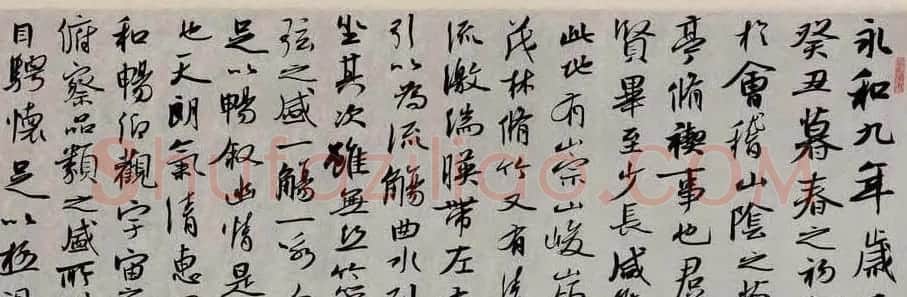 永和九年歲
癸丑暮春之初
於會稽山陰之
亭脩禊事也
賢畢至少長咸
此地有崇山峻
茂林脩竹又有清
流激湍暎帶左
引以為流觴曲水
坐其次雖無絲竹
弦之盛一觴一詠
足以暢叙幽情是
也天朗氣清惠
和暢仰觀宇宙
俯察品類之盛所
目騁懷足以極
Shufaziliao.COM